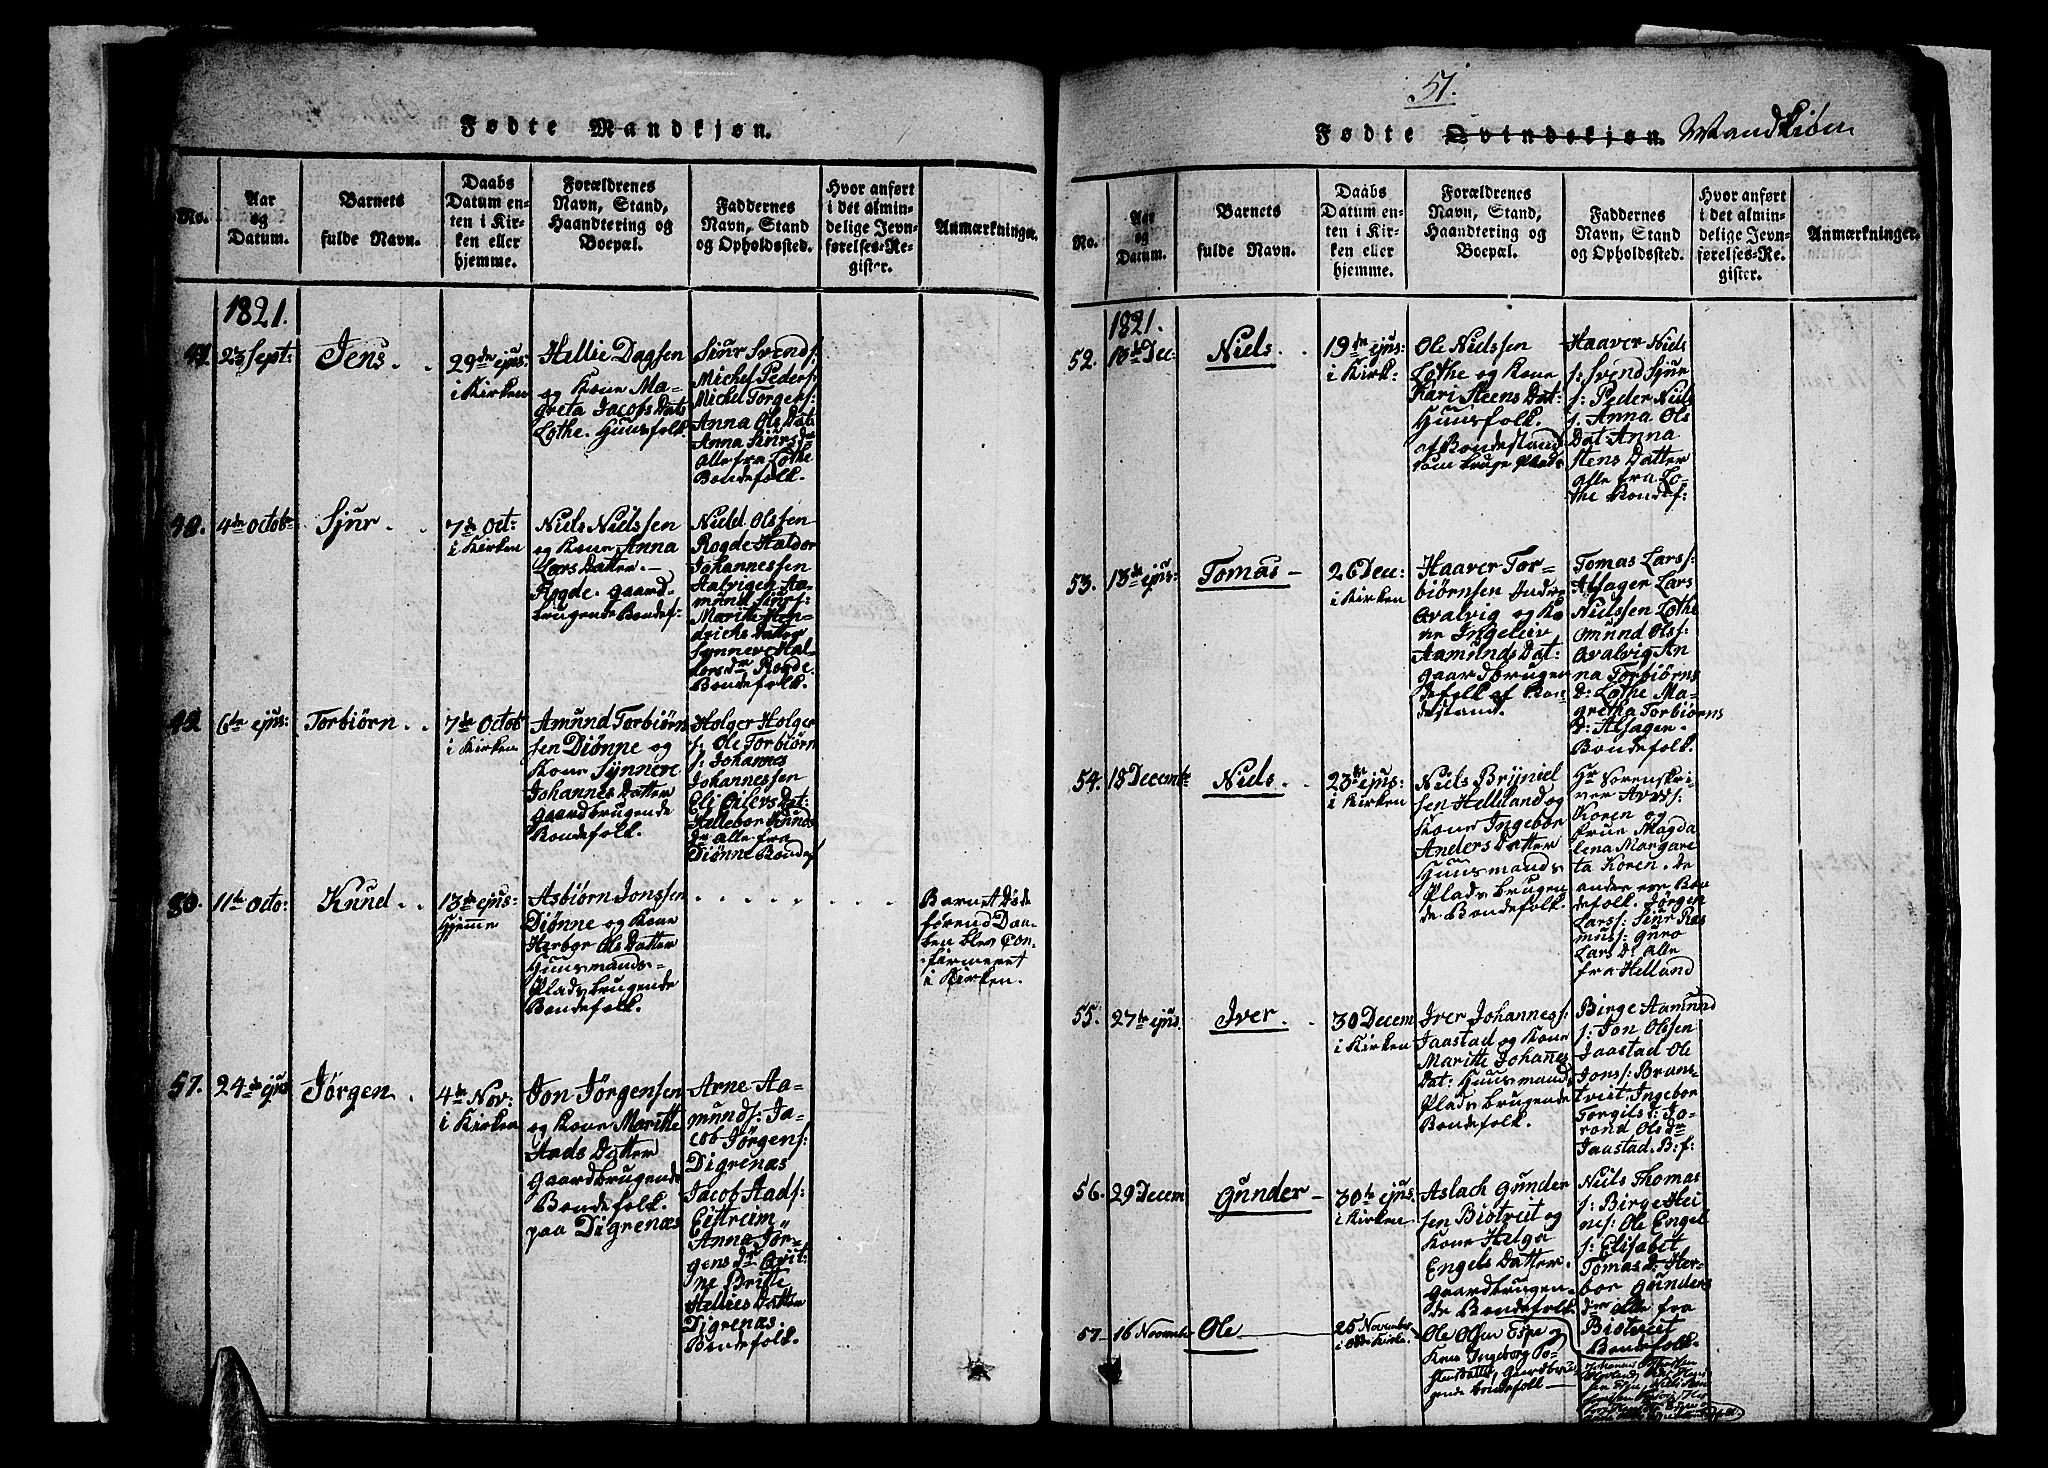 Fødte Mandkjøn.
No.
Aar
og
Datum.
Barnets
fulde Navn.
Daabs
Datum en-
ten i Kir-
ken eller
hjemme.
Forældrenes
Navn, Stand,
Haandtering og
Boepæl.
Faddernes
Navn, Stand
og Opholdssted.
Hvor anført
i det almin-
delige Jevn-
førelses-Re-
gister.
Anmærkninger.
1821.
23 Sept:
Jens
29de ejus:
i Kirken
Hellie Dagsen
og Kone Ma-
greta Jacobs Dat:
Lothe. Huusfolk
Siur Svends:
Michel Peders:
Michel Torgers:
Anna Ols Dat:
Anna Siurs dr
alle fra Lothe
Bondefolk.
48.
4de Octob:
Sjur
7de Oct:
i Kirken
Niels Nielssen
og Kone Anna
Lars Datter
Rogde. gaard-
brugende Bondef:
Nield Olssen
Rogde Haldor
Johannessen
Aalvigen Aa-
mund Siurs:
Maritte Hen-
drichs Datter
Synneve Hal-
dors dr Rogde.
Bondefolk.
49.
6te ejus:
Torbiørn
7de Octob
i Kirken
Amund Torbiørn
sen Diønne og
Kone Synneve
Johannes Datter
gaardbrugende
Bondefolk.
Holger Holger
s: Ole Torbiørn
s: Johannes
Johannessen
Eli Eilers Dat:
Hellebor Knuds
dr alle fra
Diønne Bondef
50.
11te Octo:
Knud
13de ejus:
Hjemme
Asbiørn Jonssen
Diønne og Kone
Herbor Ols Datter
Huusmands-
Plads brugende
Bondefolk.
Barnet Døde
førend Daa-
ben blev Con-
firmeret
i Kirken.
51.
24de ejus
Jørgen
4de Nov:
i Kirken
Jon Jørgensen
og Kone Maritte
Aads Datter
gaardbrugende
Bondefolk.
paa Digrenæs
Arne Aa-
munds: Ja-
cob Jørgens:
Digrenæs
Jacob Aads:
Eittreim
Anna Jør-
gens dr Qvit-
ne Britte
Hellies Datter
Digrenæs.
Bondefolk.
51.
Fødte Qvindekjøn. Mandkiøn
No.
Aar
og
Datum.
Barnets
fulde Navn.
Daabs
Datum en-
ten i Kir-
ken eller
hjemme.
Forældrenes
Navn, Stand,
Haandtering og
Boepæl.
Faddernes
Navn, Stand
og Opholdssted.
Hvor anført
i det almin-
delige Jevn-
førelses-Re-
gister.
Anmærkninger.
1821.
52.
13de Dec:
Niels
19de ejus:
i Kirk:
Ole Nielssen
Lothe og Kone
Kari Steens Dat:
Huusfolk.
af Bondestand
som bruge Plads
Haaver Niels
s: Svend Sjur
s: Peder Niels
s: Anna Ols
Dat: Anna
Stens Datter
alle fra Lo-
the Bondef:
53.
13de ejus:
Tomas
26 Dec:
i Kirken
Haaver Tor-
biørnsen Indre
Qvalvig og Ko-
ne Ingeliev
Aamunds Dat:
gaardbrugen
defolk af Bon-
destand.
Tomas Lars:
Alsager Lars
Nielssen Lothe
Omund Ols:
Qvalvig An
na Torbiørns
d: Lothe Ma-
gretha Torbiørns
d: Alsager.
Bondefolk.
54.
18 Decemb:
Niels
23de ejus:
i Kirken
Niels Bryniel
sen Helleland og
Kone Ingebor
Anders Datter
Huusmands
Plads brugen
de Bondefolk.
Hr Sorenskri-
ver Arvss:
Koren og
frue Magda
lena Margare
ta Koren. de
andre ere Bon
defolk. Jørgen
Lars: Siur Ras
mus: Guro
Lars Dr alle
fra Helland
55.
27de ejus
Iver
30 Decem
i Kirken
Iver Johannes:
Jaastad og Kone
Maritte Johanes
Dat: Huusmands
Plads brugende
Bondefolk.
Birge Aamund
s: Jon Olssen
Jaastad Ole
Jons: Brans-
tveit Ingebor
Torgils: Jo-
rand Ols dr
Jaastad. B:f:
56.
29 Decem
Gunder
30te ejus:
i Kirken
Aslach Gunder
sen Biotveit og
Kone Helga
Engels Datter.
gaardbrugen-
de Bondefolk.
Niels Thomas
s: Birge Stei
nes: Ole Engel
s: Elisabet
Tomas d: Her-
bor Gunders
dr alle fra
Biotveit
Bondefolk.
57
16 Novemb
Ole
25 November
i Odde Kirke.
Ole Olsen Espe og
Kone Ingeborg To-
stensdatter, Gaardbru-
gende Bondefolk